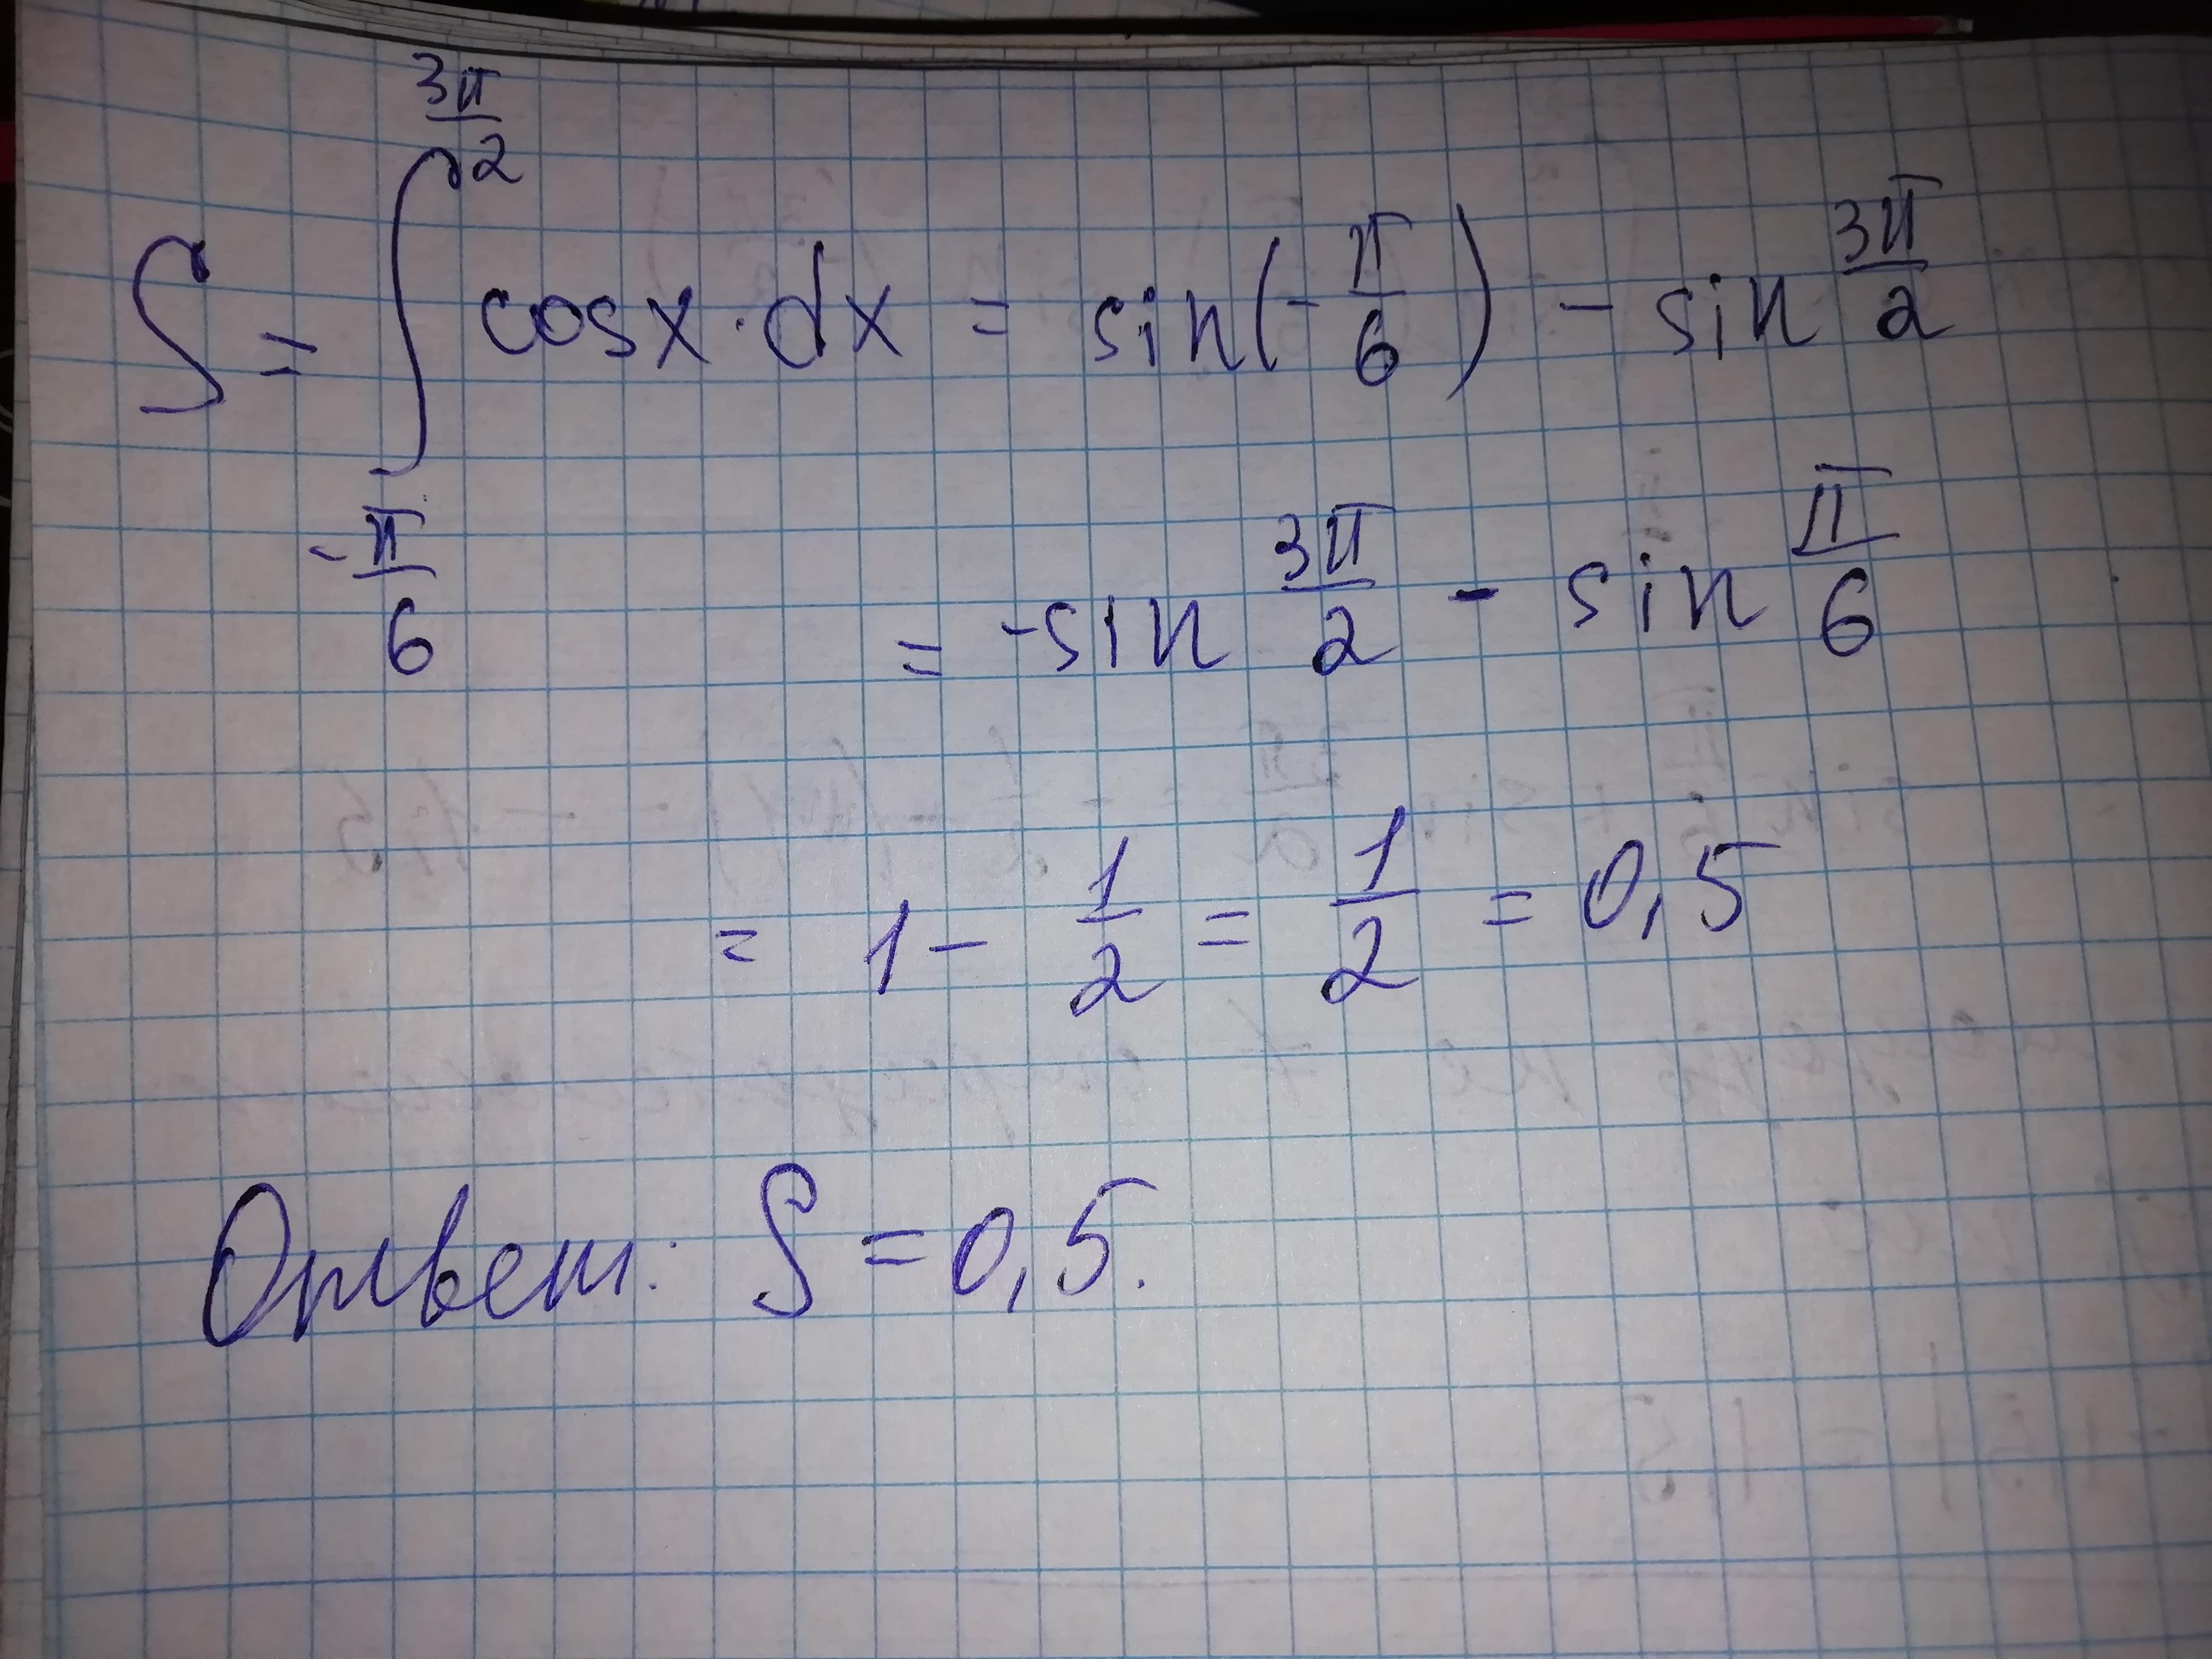 S = ∫_{-π/6}^{3π/2} cosx · dx = sin(-π/6) - sin 3π/2
= -sin 3π/2 - sin π/6
= 1 - 1/2 = 1/2 = 0,5
Ответ: S = 0,5.